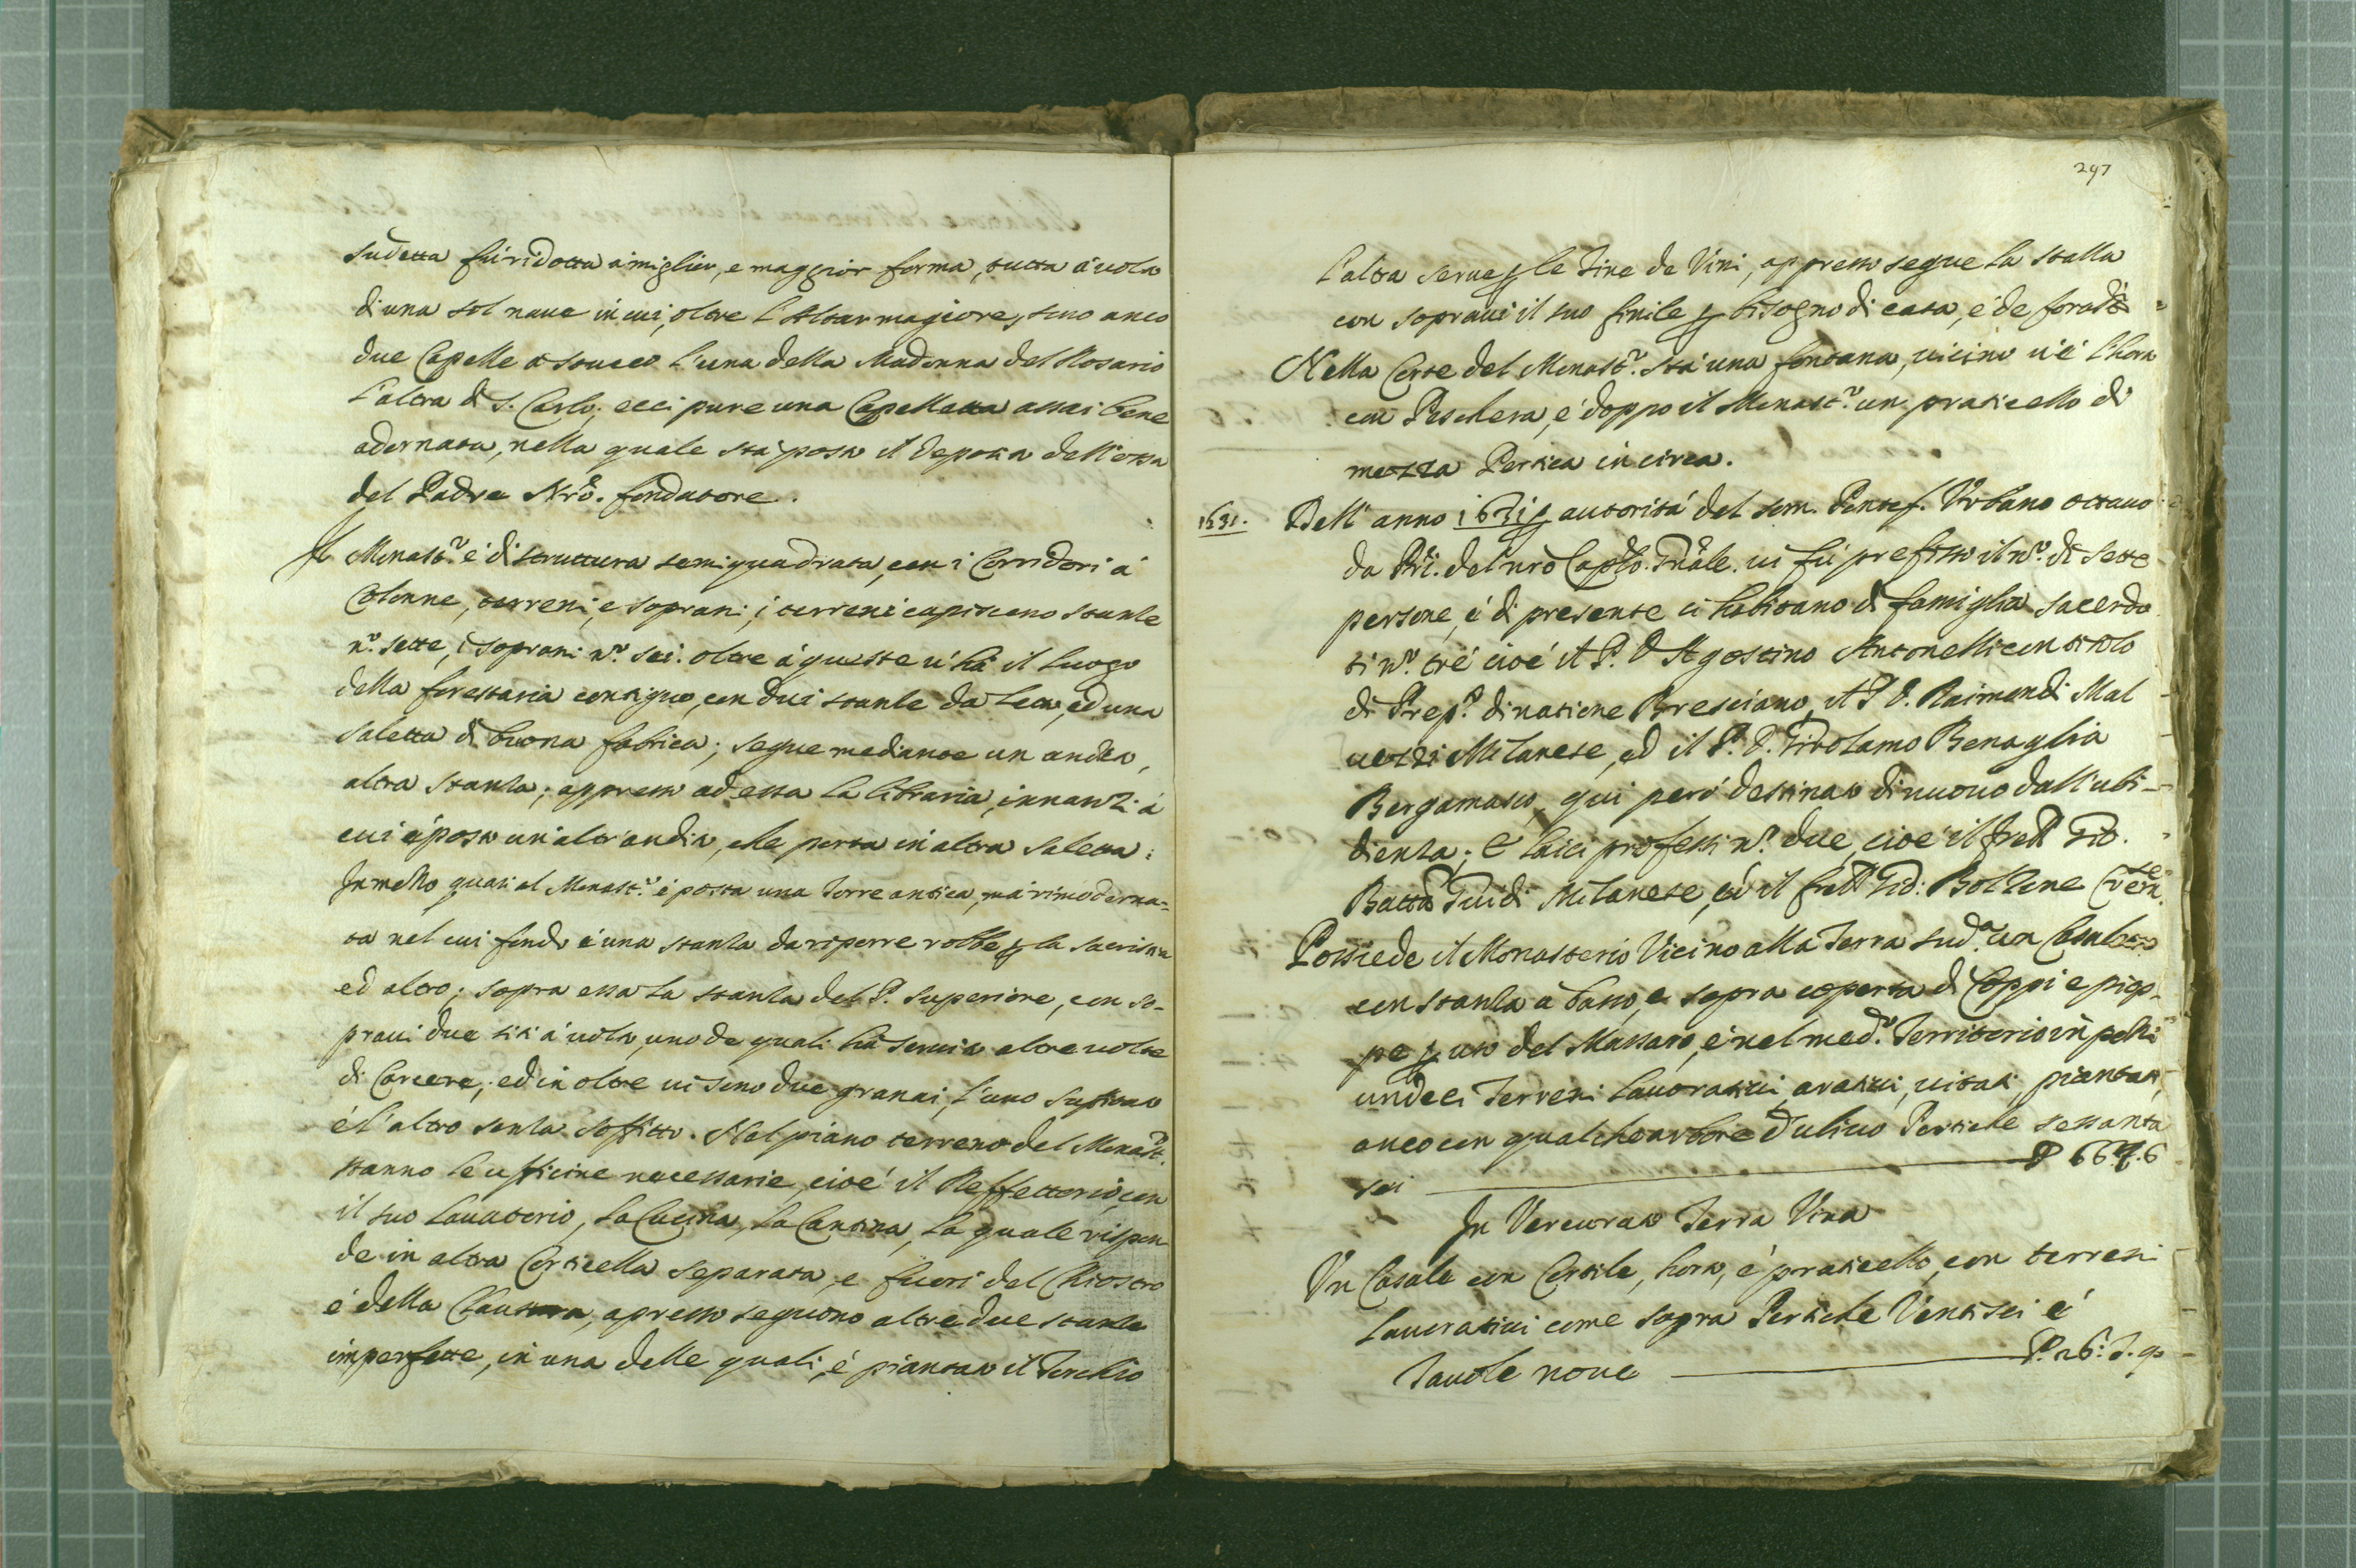 sudetta fù ridotta à miglior, e maggior forma, tutta à uolto
di una sol naue in cui, oltre l'Altar magiore, sono anco
due Capelle à stucco l'una della Madonna del Rosario
l'altra di S. Carlo; ecci pure una Capelletta assai bene
adornata, nella quale stà posto il deposito dell'ossa
del Padre Nrō. fondatore.
Il Monastº. é di struttura semiquadrata, con i Corridori à
Colonne, terreni, e soprani; i terreni capiscono stanze
nº. sette, i soprani nº. sei. oltre à queste u'hà il luogo
della forestaria contiguo, con dui stanze da letto, ed una
saletta di buona fabrica; segue mediante un andito,
altra stanza; appresso ad essa la libraria, innanzi à
cui é posto un'altr'andito, che porta in altra saletta:
In mezzo quasi al Monastº. é posta una Torre antica, mà rimoderna=
ta nel cui fondo é una stanza da riporre robbe p la sacristia
ed altro; sopra essa la stanza del P. Superiore, con so-
praui due siti à uolto, uno de quali hà seruito altre uolte
di Carcere; ed in oltre ui sono due granai, l'uno
é l'altro senza soffitto. Nel piano terreno del Monastº.
stanno le officine necessarie, cioé il Reffettorio, con
il suo lauatorio, la Cucina, la Cantina, la quale rispon
de in altra Corticella separata, e fuori del Chiostro
é della Clausura, apresso seguono altre due stanze
imperfette, in una delle quali é piantato il Torchio
297
l'altra serue p le Tine de Vini, appresso segue la stalla
con sopraui il suo finile p bisogno di casa, é de
Nella Corte del Monastº. stà una fontana, uicino u'é l'horto
con Peschera, é doppo il Monastº. un praticello di
mezza Pertica in circa.
1631. Dell'anno 1631 p autorità del som. Pontef. Vrbano ottauo
da Pri. del nrō Caplo. Gnāle. ui fù prefisso il nº. di sette
persone, é di presente ci habitano di famiglia sacerdo
ti nº. tré cioé il P. D. Agostino Antonelli con titolo
di Prepº. di natione Bresciano, il P. D. Raimondi Mal
uezzi Milanese, ed il P. D. Girolamo Benaglia
Bergamasco, qui però destinato di nuouo dall'ubi-
dienza; E laici professi nº. due, cioé il frell Gio.
Battā Guidi Milanese, ed il frell Gio: Bolzone
Possiede il Monasterio Vicino alla Terra sudª. un
con stanza à basso, e sopra coperta di Coppi e pio-
pe p uso del Massaro, é nel medº. Territorio in pezzi
undeci Terreni lauoratiui, aratiui, uitati, piantati,
anco con qualche arbore d'uliuo Pertiche sessanta
sei P 66. 6
In Vercurato Terra Vina
Vn Casale con Cortile, horto, é praticello, con terreni
lauoratiui come sopra Pertiche Ventisei é
Tauole noue P. 26: T. 9